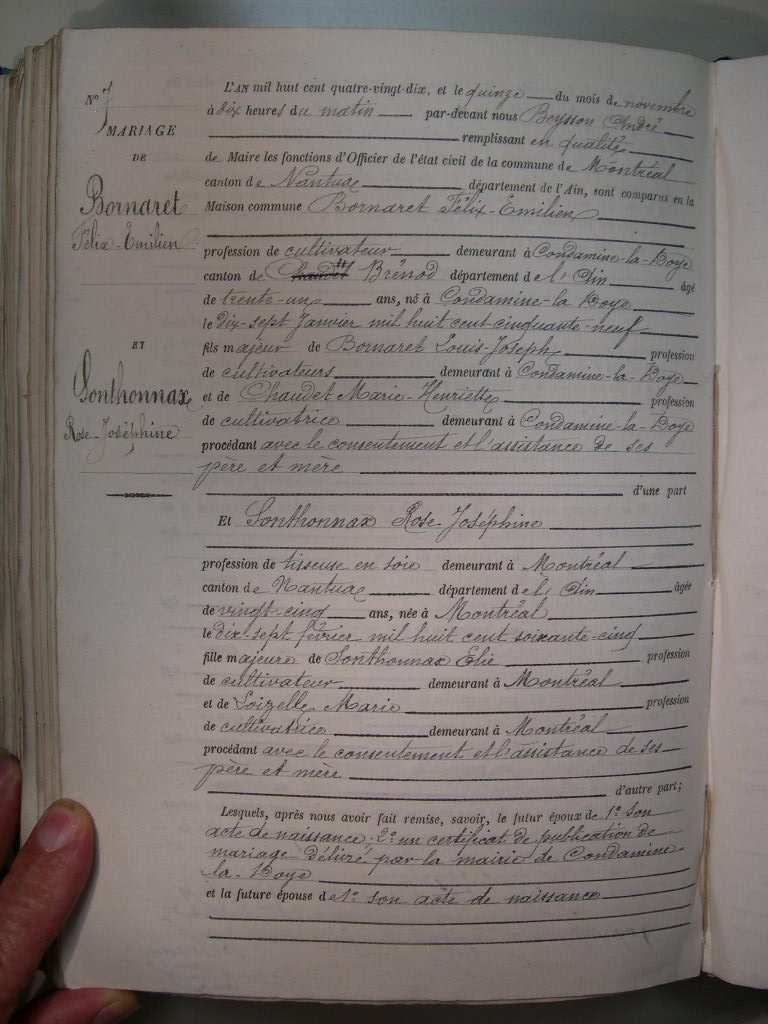 N° 7
MARIAGE
DE
Bornaret
Félix-Emilien
ET
Sonthonnax
Rose-Joséphine
L'AN mil huit cent quatre-vingt-dix, et le quinze du mois de novembre
à dix heures du matin par-devant nous Beysson André
remplissant en qualité
de Maire les fonctions d'Officier de l'état civil de la commune de Montréal
canton de Nantua département de l'Ain, sont comparus en la
Maison commune Bornaret Félix-Emilien
profession de cultivateur demeurant à Condamine-la-Doye
canton de Brénod département de l'Ain âgé
de trente-un ans, né à Condamine-la Doye
le dix-sept Janvier mil huit cent cinquante-neuf
fils majeur de Bornaret Louis-Joseph profession
de cultivateurs demeurant à Condamine-la-Doye
et de Chaudet Marie-Henriette profession
de cultivatrice demeurant à Condamine-la-Doye
procédant avec le consentement et l'assistance de ses
père et mère
d'une part
Et Sonthonnax Rose-Joséphine
profession de tisseuse en soie demeurant à Montréal
canton de Nantua département de l'Ain âgée
de vingt-cinq ans, née à Montréal
le dix-sept février mil huit cent soixante-cinq
fille majeure de Sonthonnax Elie profession
de cultivateur demeurant à Montréal
et de Loizelle Marie profession
de cultivatrice demeurant à Montréal
procédant avec le consentement et l'assistance de ses
père et mère
d'autre part;
Lesquels, après nous avoir fait remise, savoir, le futur époux de 1° son
acte de naissance. 2° un certificat de publication de
mariage délivré par la mairie de Condamine-
la-Doye
et la future épouse de 1° son acte de naissance